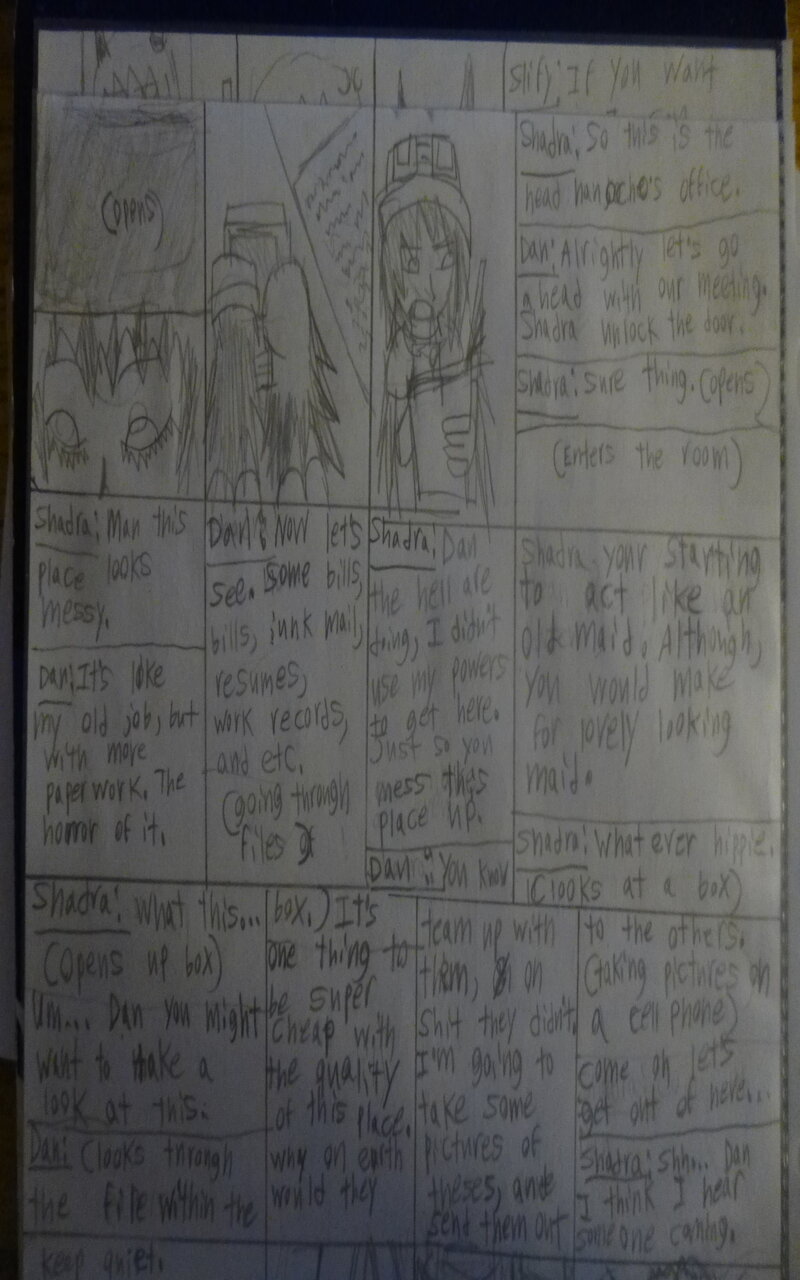 Slify: If you want
(opens)
Shadra: So this is the
head honcho's office.
Dan: Alrightly let's go
ahead with our meeting.
Shadra unlock the door.
Shadra: sure thing. (opens)
(Enters the room)
Shadra: Man this
place looks
messy.
Dan: It's like
my old job, but
with more
paperwork. The
horror of it.
Dan: Now let's
see. some bills,
bills, junk mail,
resumes,
work records,
and etc.
(going through
files)
Shadra: Dan
the hell are
doing, I didn't
use my powers
to get here.
Just so you
mess this
place up.
Dan: You know
Shadra your starting
to act like an
old maid. Although,
you would make
for lovely looking
maid.
Shadra: What ever hippie.
(looks at a box)
Shadra: What this...
(Opens up box)
Um... Dan you might
want to take a
look at this.
Dan: (looks through
the file within the
box.) It's
one thing to
be super
cheap with
the quality
of this place.
why on earth
would they
team up with
them, on
shit they didn't.
I'm going to
take some
pictures of
theses, and
send them out
to the others.
(taking pictures on
a cell phone)
come on let's
get out of here...
Shadra: Shh... Dan
I think I hear
someone coming.
keep quiet.